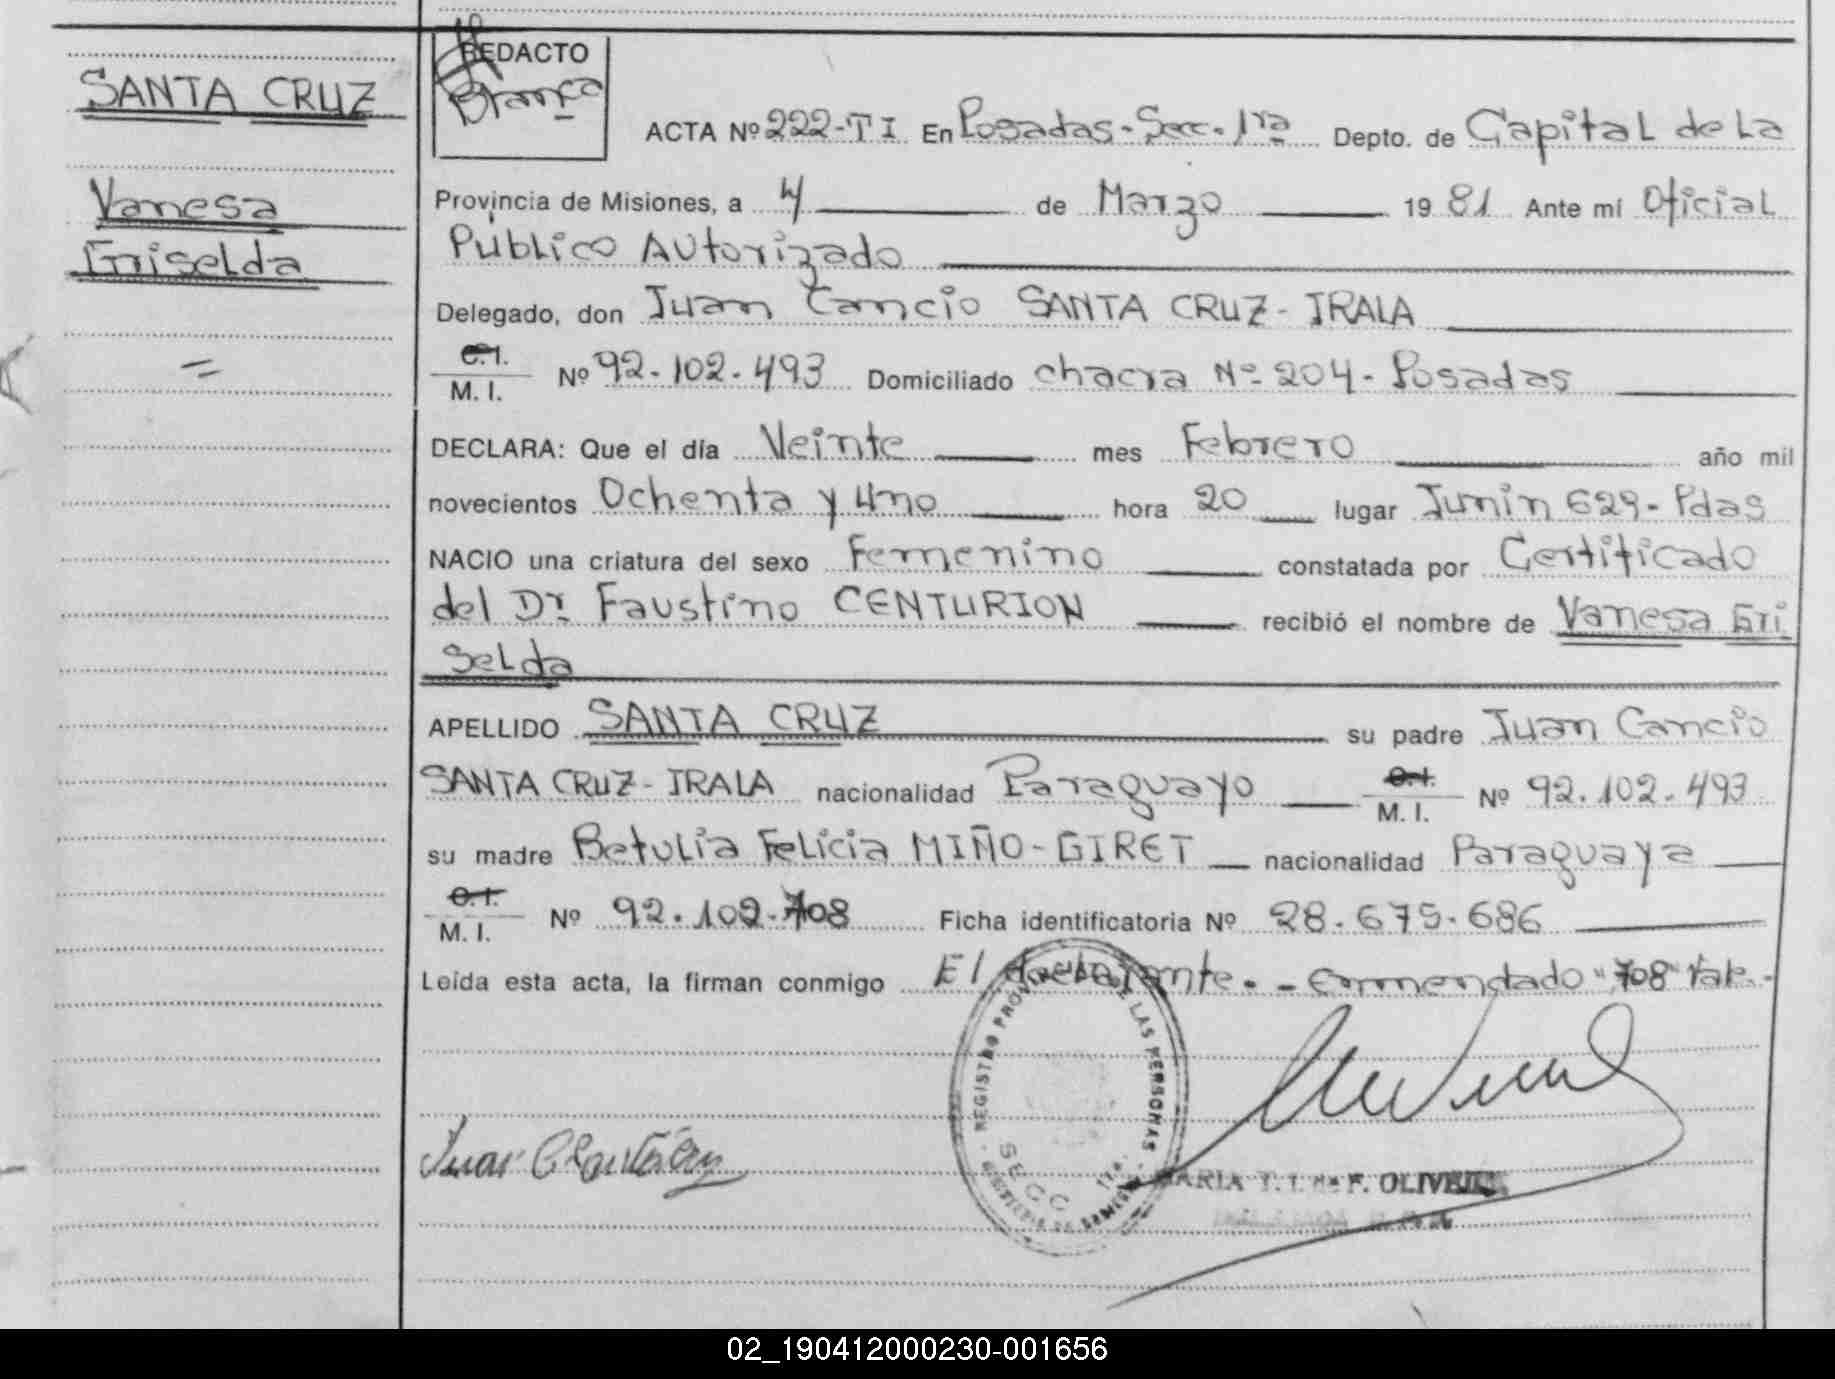 SANTA CRUZ
Vanesa
Griselda
=
REDACTO
Blanca
ACTA Nº 222-T I En Posadas-Secc. 1ra Depto. de Capital de La
Provincia de Misiones, a 4 de Marzo 1981 Ante mí Oficial
Público Autorizado
Delegado, don Juan Cancio SANTA CRUZ - IRALA
C.I.
M. I. Nº 92.102.493 Domiciliado chacra Nº 204 - Posadas
DECLARA: Que el día Veinte mes Febrero año mil
novecientos Ochenta y Uno hora 20 lugar Junin 629 - Pdas
NACIO una criatura del sexo Femenino constatada por Certificado
del Dr. Faustino CENTURION recibió el nombre de Vanesa Gri
selda
APELLIDO SANTA CRUZ su padre Juan Cancio
SANTA CRUZ - IRALA nacionalidad Paraguayo C.I. M. I. Nº 92.102.493
su madre Betulia Felicia MIÑO - GIRET nacionalidad Paraguaya
C.I.
M. I. Nº 92.102.708 Ficha identificatoria Nº 28.675.686
Leída esta acta, la firman conmigo El declarante. - Enmendado "708" Vale.-
REGISTRO PROVINCIAL DE LAS PERSONAS
SECC. 1ra.
MARIA T. F. OLIVEIRA
02_190412000230-001656